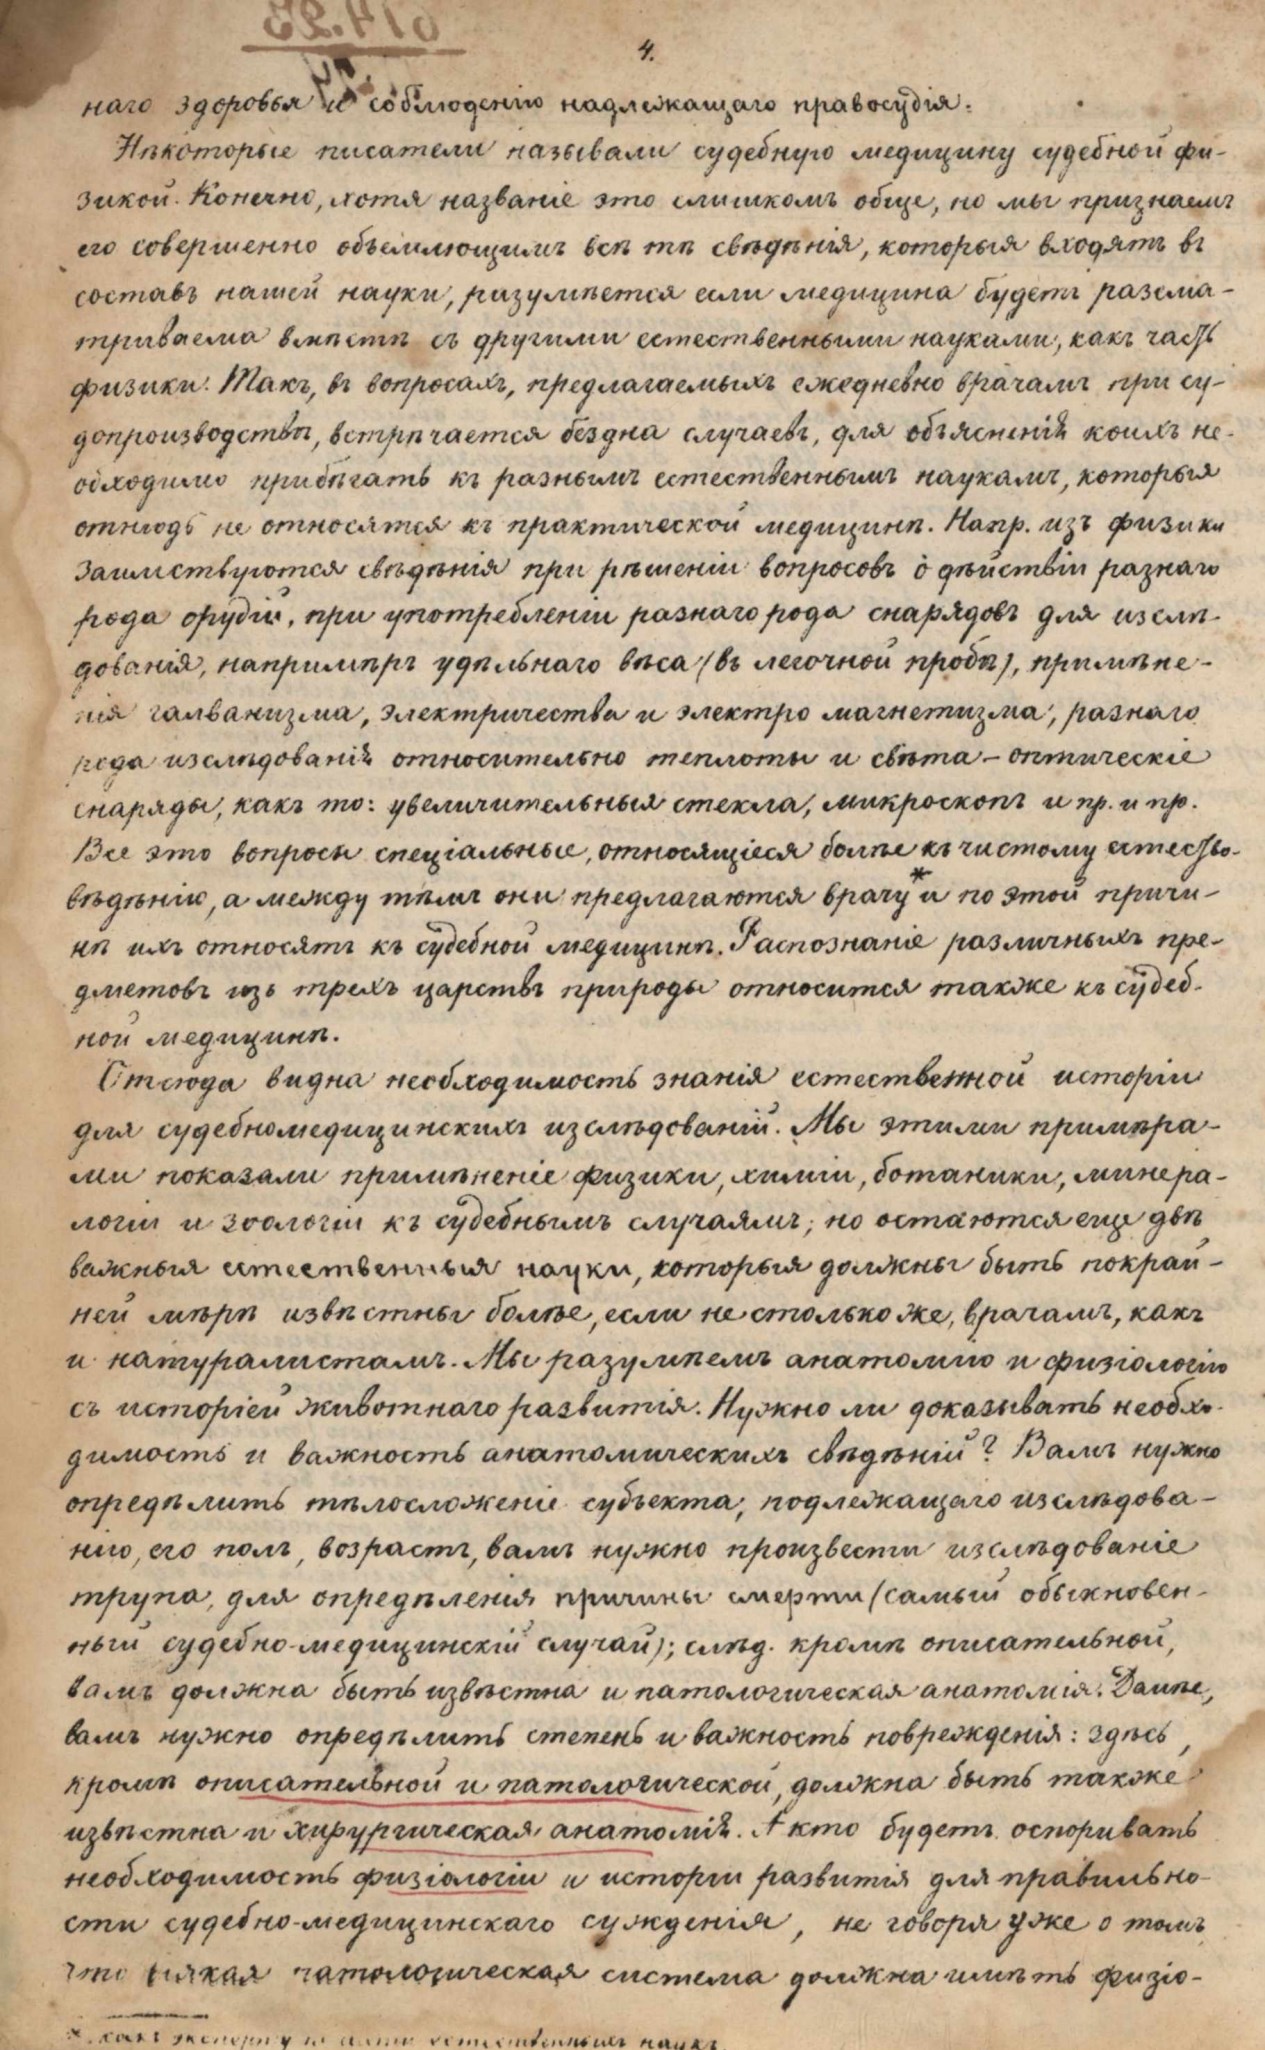 4.
наго здоровья и соблюденію надлежащаго правосудія.
Нѣкоторые писатели называли судебную медицину судебной фи-
зикой. Конечно, хотя названіе это слишкомъ обще, но мы признаемъ
его совершенно объемлющимъ всѣ тѣ свѣдѣнія, которыя входятъ въ
составъ нашей науки, разумѣется если медицина будетъ разсма-
триваема вмѣстѣ съ другими естественными науками, какъ часть
физики. Такъ, въ вопросахъ, предлагаемыхъ ежедневно врачамъ при су-
допроизводствѣ, встрѣчается бездна случаевъ, для объясненія коихъ не-
обходимо прибѣгать къ разнымъ естественнымъ наукамъ, которыя
отнюдь не относятся къ практической медицинѣ. Напр. изъ физики
заимствуются свѣдѣнія при рѣшеніи вопросовъ о дѣйствіи разнаго
рода орудій, при употребленіи разнаго рода снарядовъ для изслѣ-
дованія, напримѣръ удѣльнаго вѣса (въ легочной пробѣ), примѣне-
нія галванизма, электричества и электро магнетизма, разнаго
рода изслѣдованій относительно теплоты и свѣта – оптическіе
снаряды, какъ то: увеличительныя стекла, микроскопъ и пр. и пр.
Все это вопросы спеціальные, относящіеся болѣе къ чистому естество-
вѣдѣнію, а между тѣмъ они предлагаются врачу* и по этой причи-
нѣ ихъ относятъ къ судебной медицинѣ. Распознаніе различныхъ пре-
дметовъ изъ трехъ царствъ природы относится также къ судеб-
ной медицинѣ.
Отсюда видна необходимость знанія естественной исторіи
для судебномедицинскихъ изслѣдованій. Мы этими примѣра-
ми показали примѣненіе физики, химіи, ботаники, минера-
логіи и зоологіи къ судебнымъ случаямъ; но остаются еще двѣ
важныя естественныя науки, которыя должны быть покрай-
ней мѣрѣ извѣстны болѣе, если не столько же, врачамъ, какъ
и натуралистамъ. Мы разумѣемъ анатомію и физіологію
съ исторіей животнаго развитія. Нужно ли доказывать необхо-
димость и важность анатомическихъ свѣдѣній? Вамъ нужно
опредѣлить тѣлосложеніе субъекта, подлежащаго изслѣдова-
нію, его полъ, возрастъ, вамъ нужно произвести изслѣдованіе
трупа, для опредѣленія причины смерти (самый обыкновен-
ный судебно-медицинскій случай); слѣд. кромѣ описательной,
вамъ должна быть извѣстна и патологическая анатомія. Далѣе,
вамъ нужно опредѣлить степень и важность поврежденія: здѣсь,
кромѣ описательной и патологической, должна быть также
извѣстна и хирургическая анатомія. А кто будетъ оспоривать
необходимость физіологіи и исторіи развитія для правильно-
сти судебно-медицинскаго сужденія, не говоря уже о томъ
что всякая патологическая система должна имѣть физіо-
* какъ эксперту по части естественныхъ наукъ.